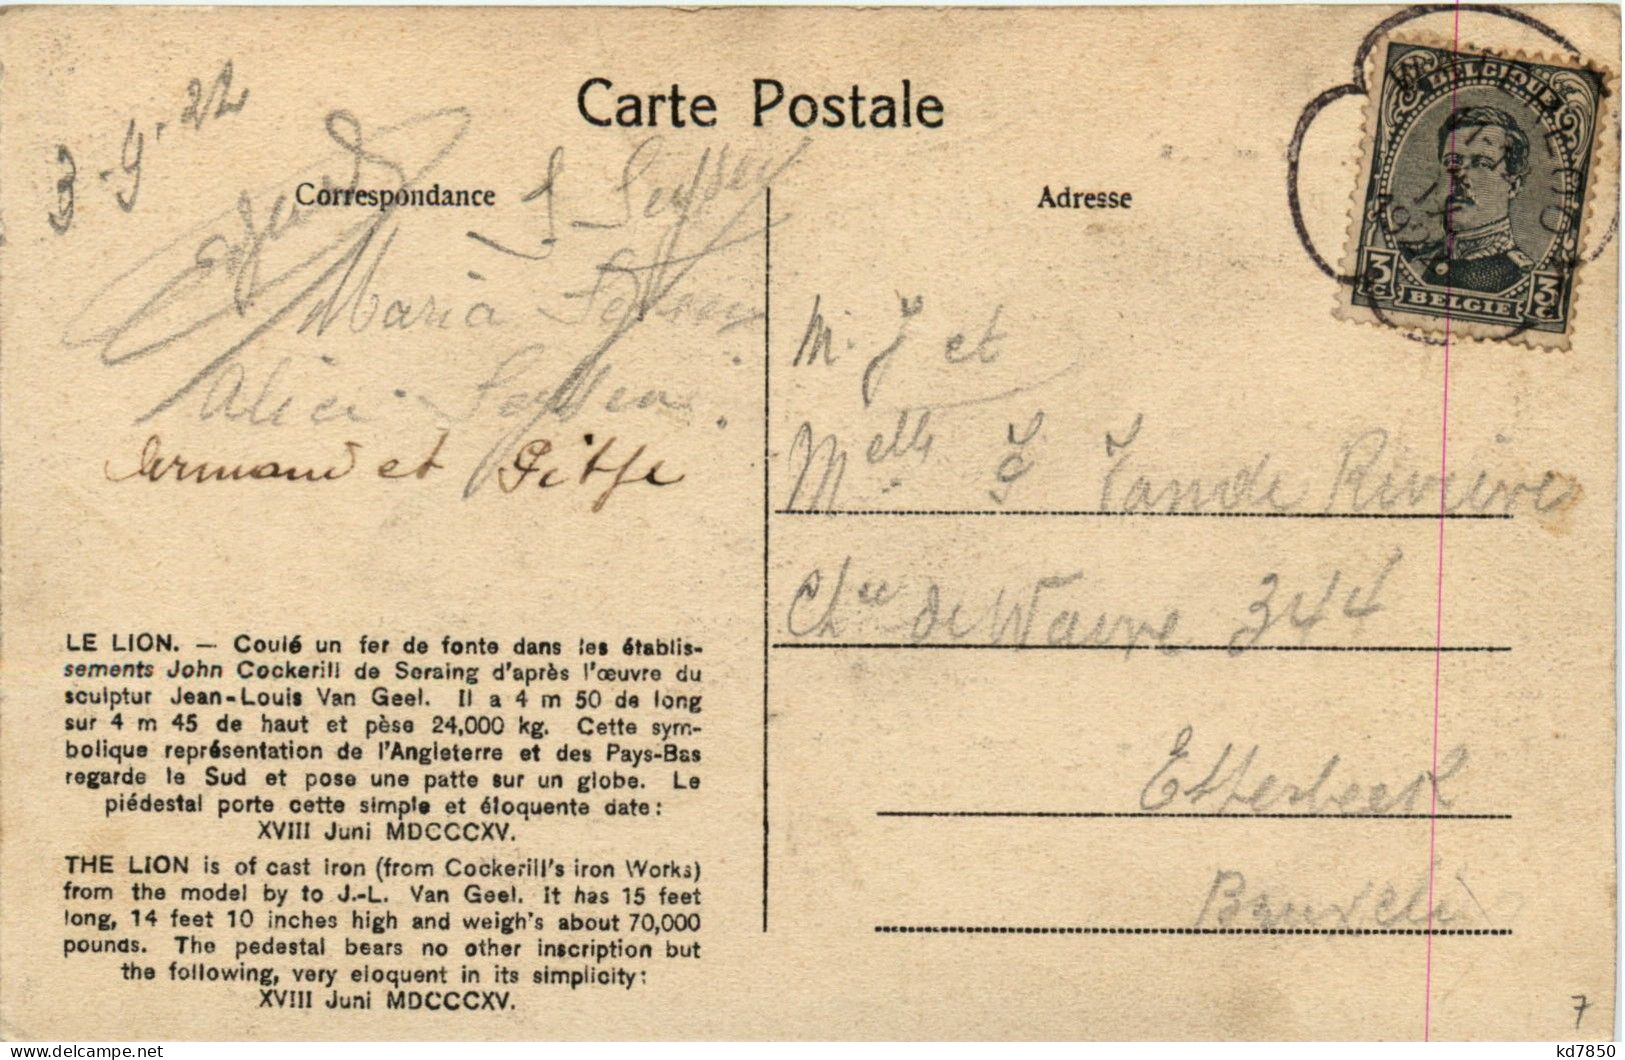 Carte Postale
3-9-22
Correspondance
Adresse
Maria
Armand et
M. J et
Melle J Vande Rivière
Chée de Wavre 344
Etterbeek
Bruxelles
BELGIQUE
3c BELGIE 3c
LE LION. — Coulé un fer de fonte dans les établis-
sements John Cockerill de Seraing d'après l'œuvre du
sculptur Jean-Louis Van Geel. Il a 4 m 50 de long
sur 4 m 45 de haut et pèse 24,000 kg. Cette sym-
bolique représentation de l'Angleterre et des Pays-Bas
regarde le Sud et pose une patte sur un globe. Le
piédestal porte cette simple et éloquente date:
XVIII Juni MDCCCXV.
THE LION is of cast iron (from Cockerill's iron Works)
from the model by to J.-L. Van Geel. It has 15 feet
long, 14 feet 10 inches high and weigh's about 70,000
pounds. The pedestal bears no other inscription but
the following, very eloquent in its simplicity:
XVIII Juni MDCCCXV.
7
kd7850